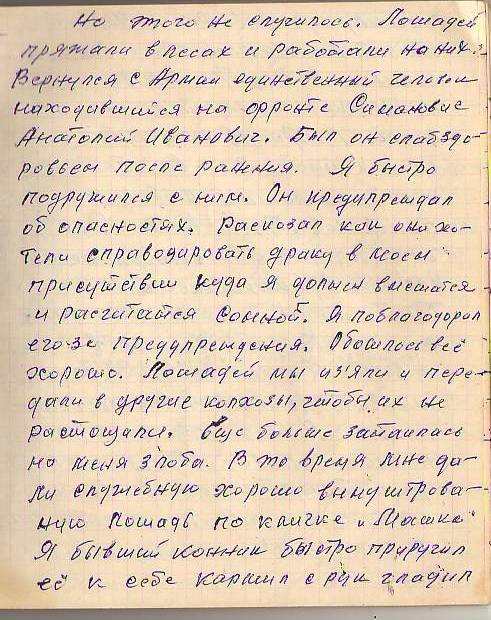 Но этого не случилось. Лошадей
пряжали в лесах и работали на них.
Вернулся с Армии единственний человек
находившийся на фронте Симанович
Анатолий Иванович. Был он слаб здо-
ровьем после ранения. Я быстро
подружился с ним. Он предупреждал
об опасностях. Расказал как они хо-
тели справоцировать драку в моем
присутствии куда я должен вмешатся
и расчитатся со мной. Я поблагодорил
его за предупреждения. Обошлось всё
хорошо. Лошадей мы из'яли и пере-
дали в другие колхозы, чтобы их не
растощили. Еще больше затаилась
на меня злоба. В то время мне да-
ли служебную хорошо вынуштрова-
ную лошадь по кличке „Машка"
Я бывший конник быстро приручил
её к себе кормил с рук гладил